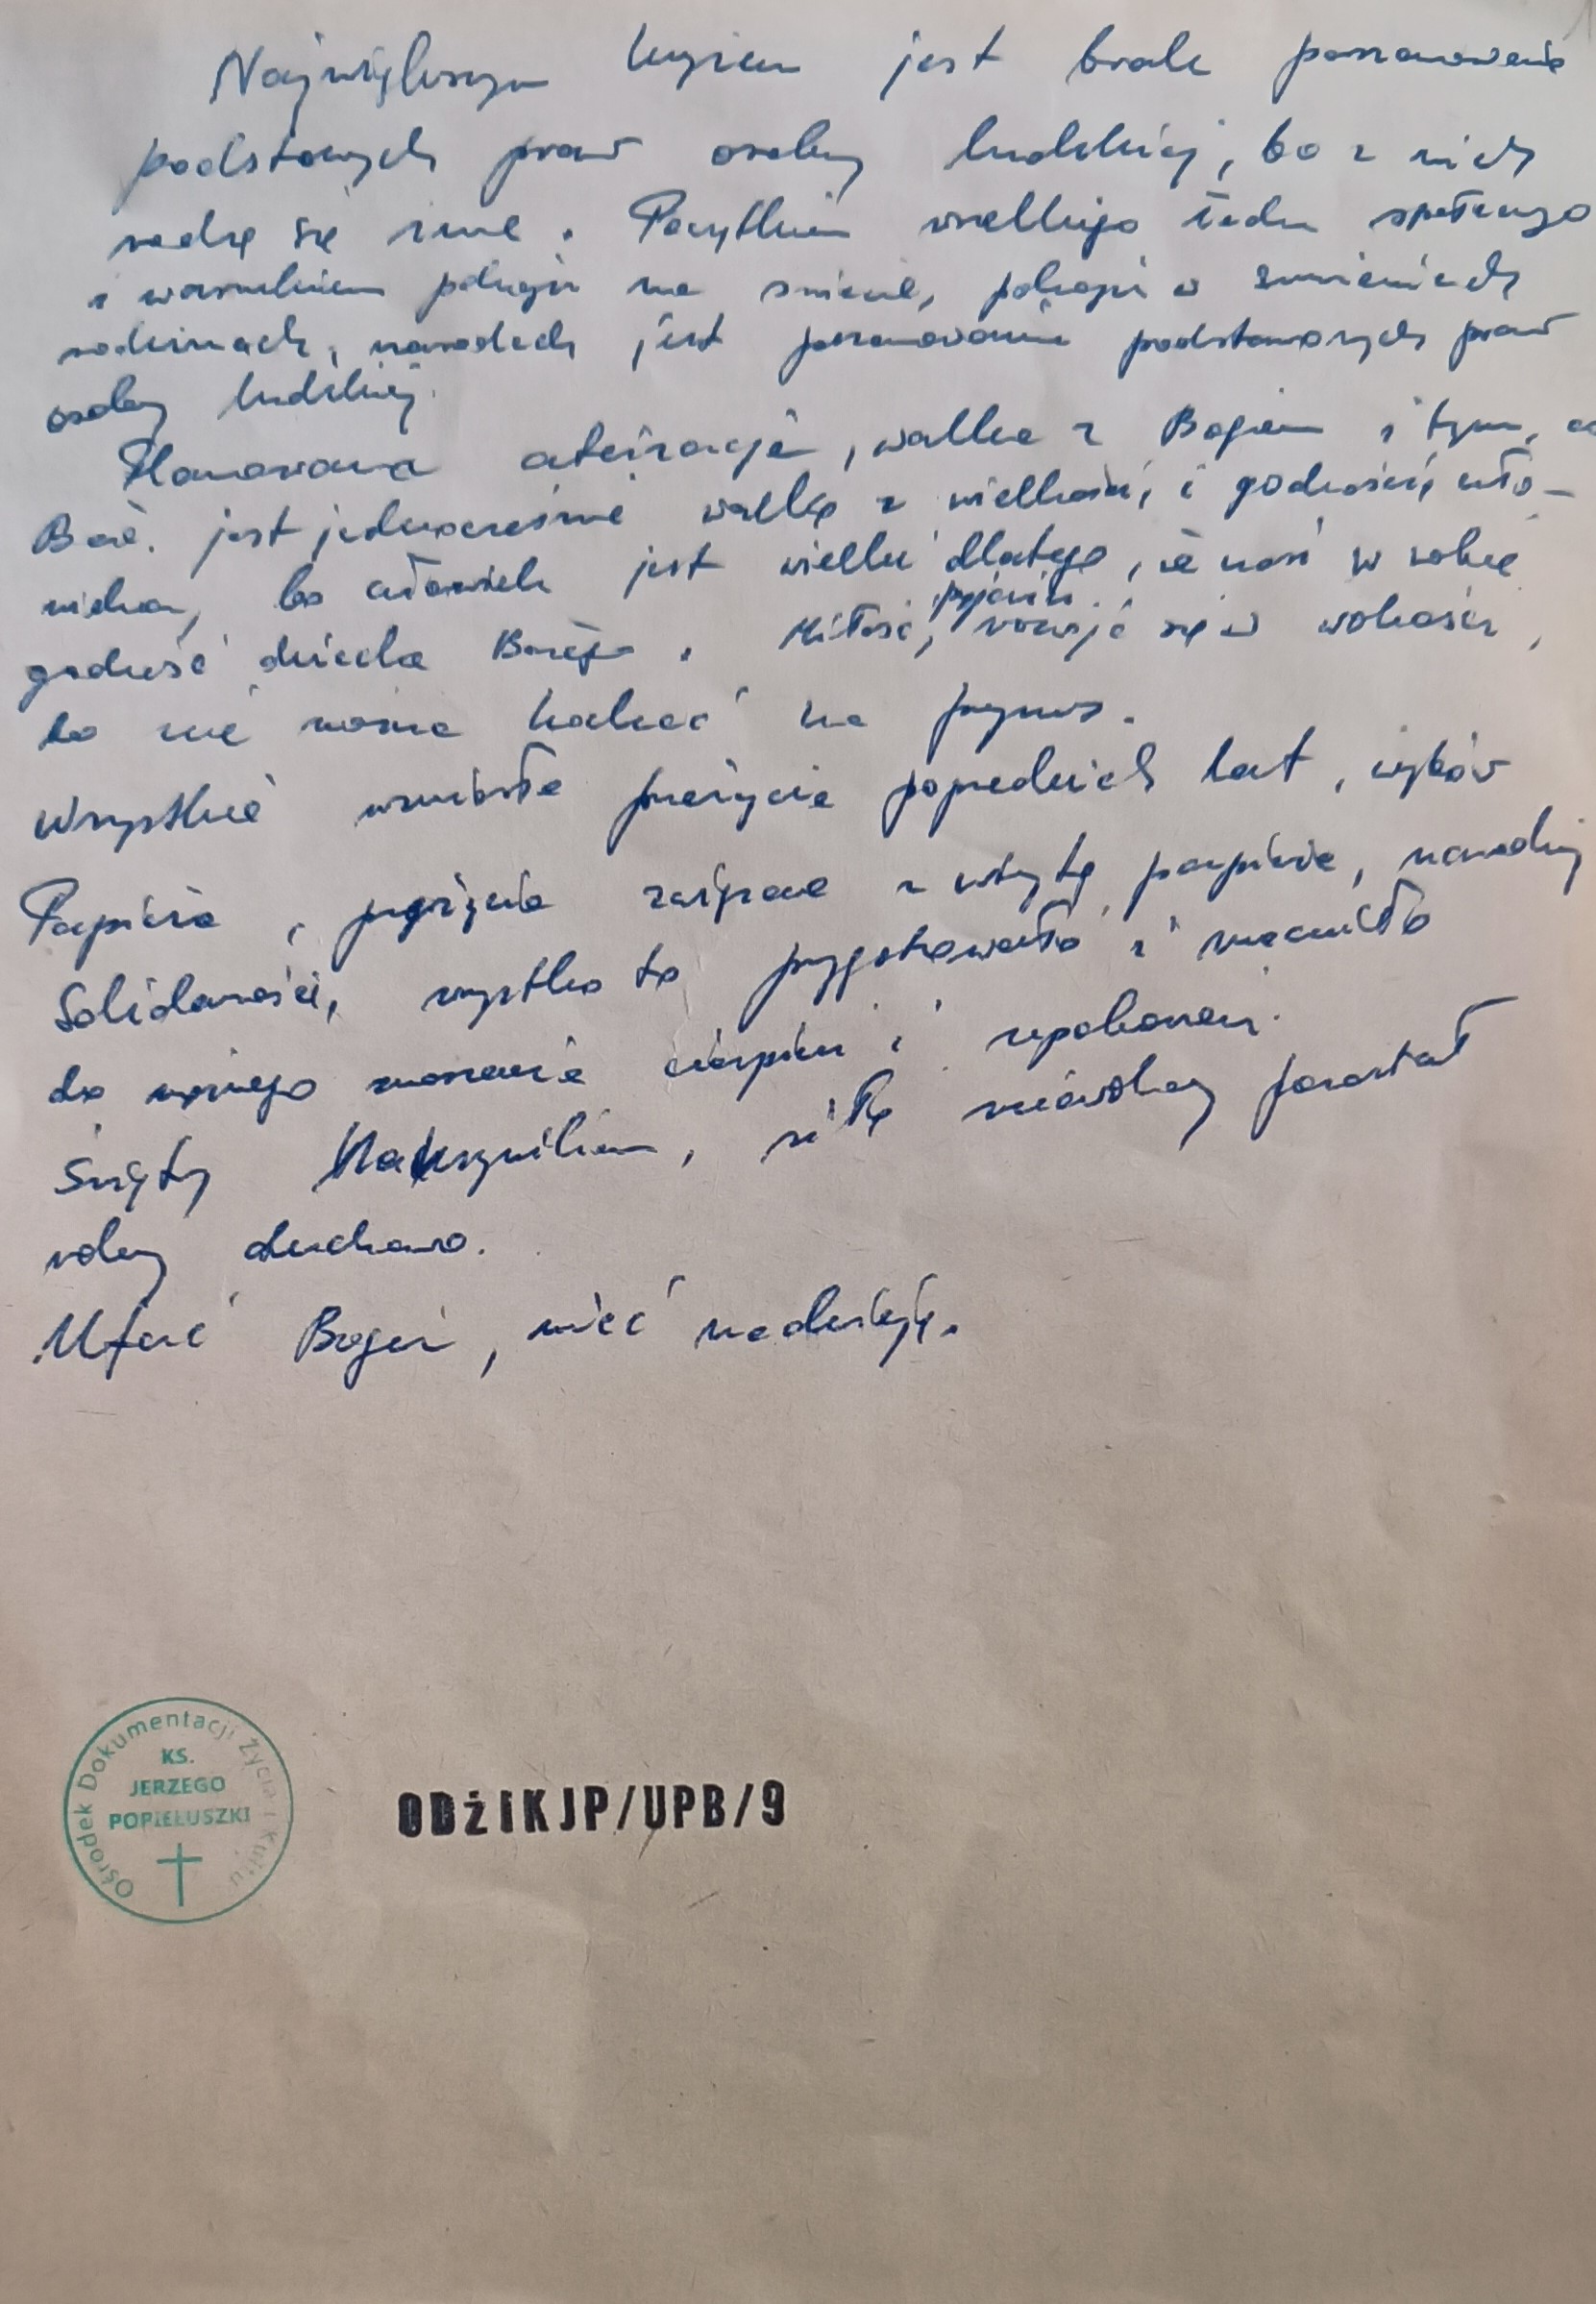 Największym kryzem jest brak poszanowania
podstawych praw osoby ludzkiej, bo z nich
rodzą się inne. Początkiem wszelkiego ładu społecznego
i warunkiem pokoju na świecie, pokoju w sumieniach
rodzinach, narodach jest poszanowanie podstawowych praw
osoby ludzkiej.
Planowana ateizacja, walka z Bogiem i tym, co
Boże. jest jednocześnie walką z wielkością i godnością czło-
wieka, bo człowiek jest wielki dlatego, że nosi w sobie
godność dziecka Bożego. Miłość, przyjaźń rozwija się w wolności,
bo nie można kochać na przymus.
Wszystkie wzniosłe przeżycia poprzednich lat, wybór
Papieża, przeżycia związane z wizytą papieża, narodziny
Solidarności, wszystko to przygotowało i wzmocniło
do mężnego znoszenia cierpień i upokorzeń.
Święty Maksymilian, siłą zniewolony pozostał
wolny duchowo.
Ufać Bogu, mieć nadzieję.
Ośrodek Dokumentacji Życia i Kultu
KS.
JERZEGO
POPIEŁUSZKI
ODŻIKJP/UPB/9